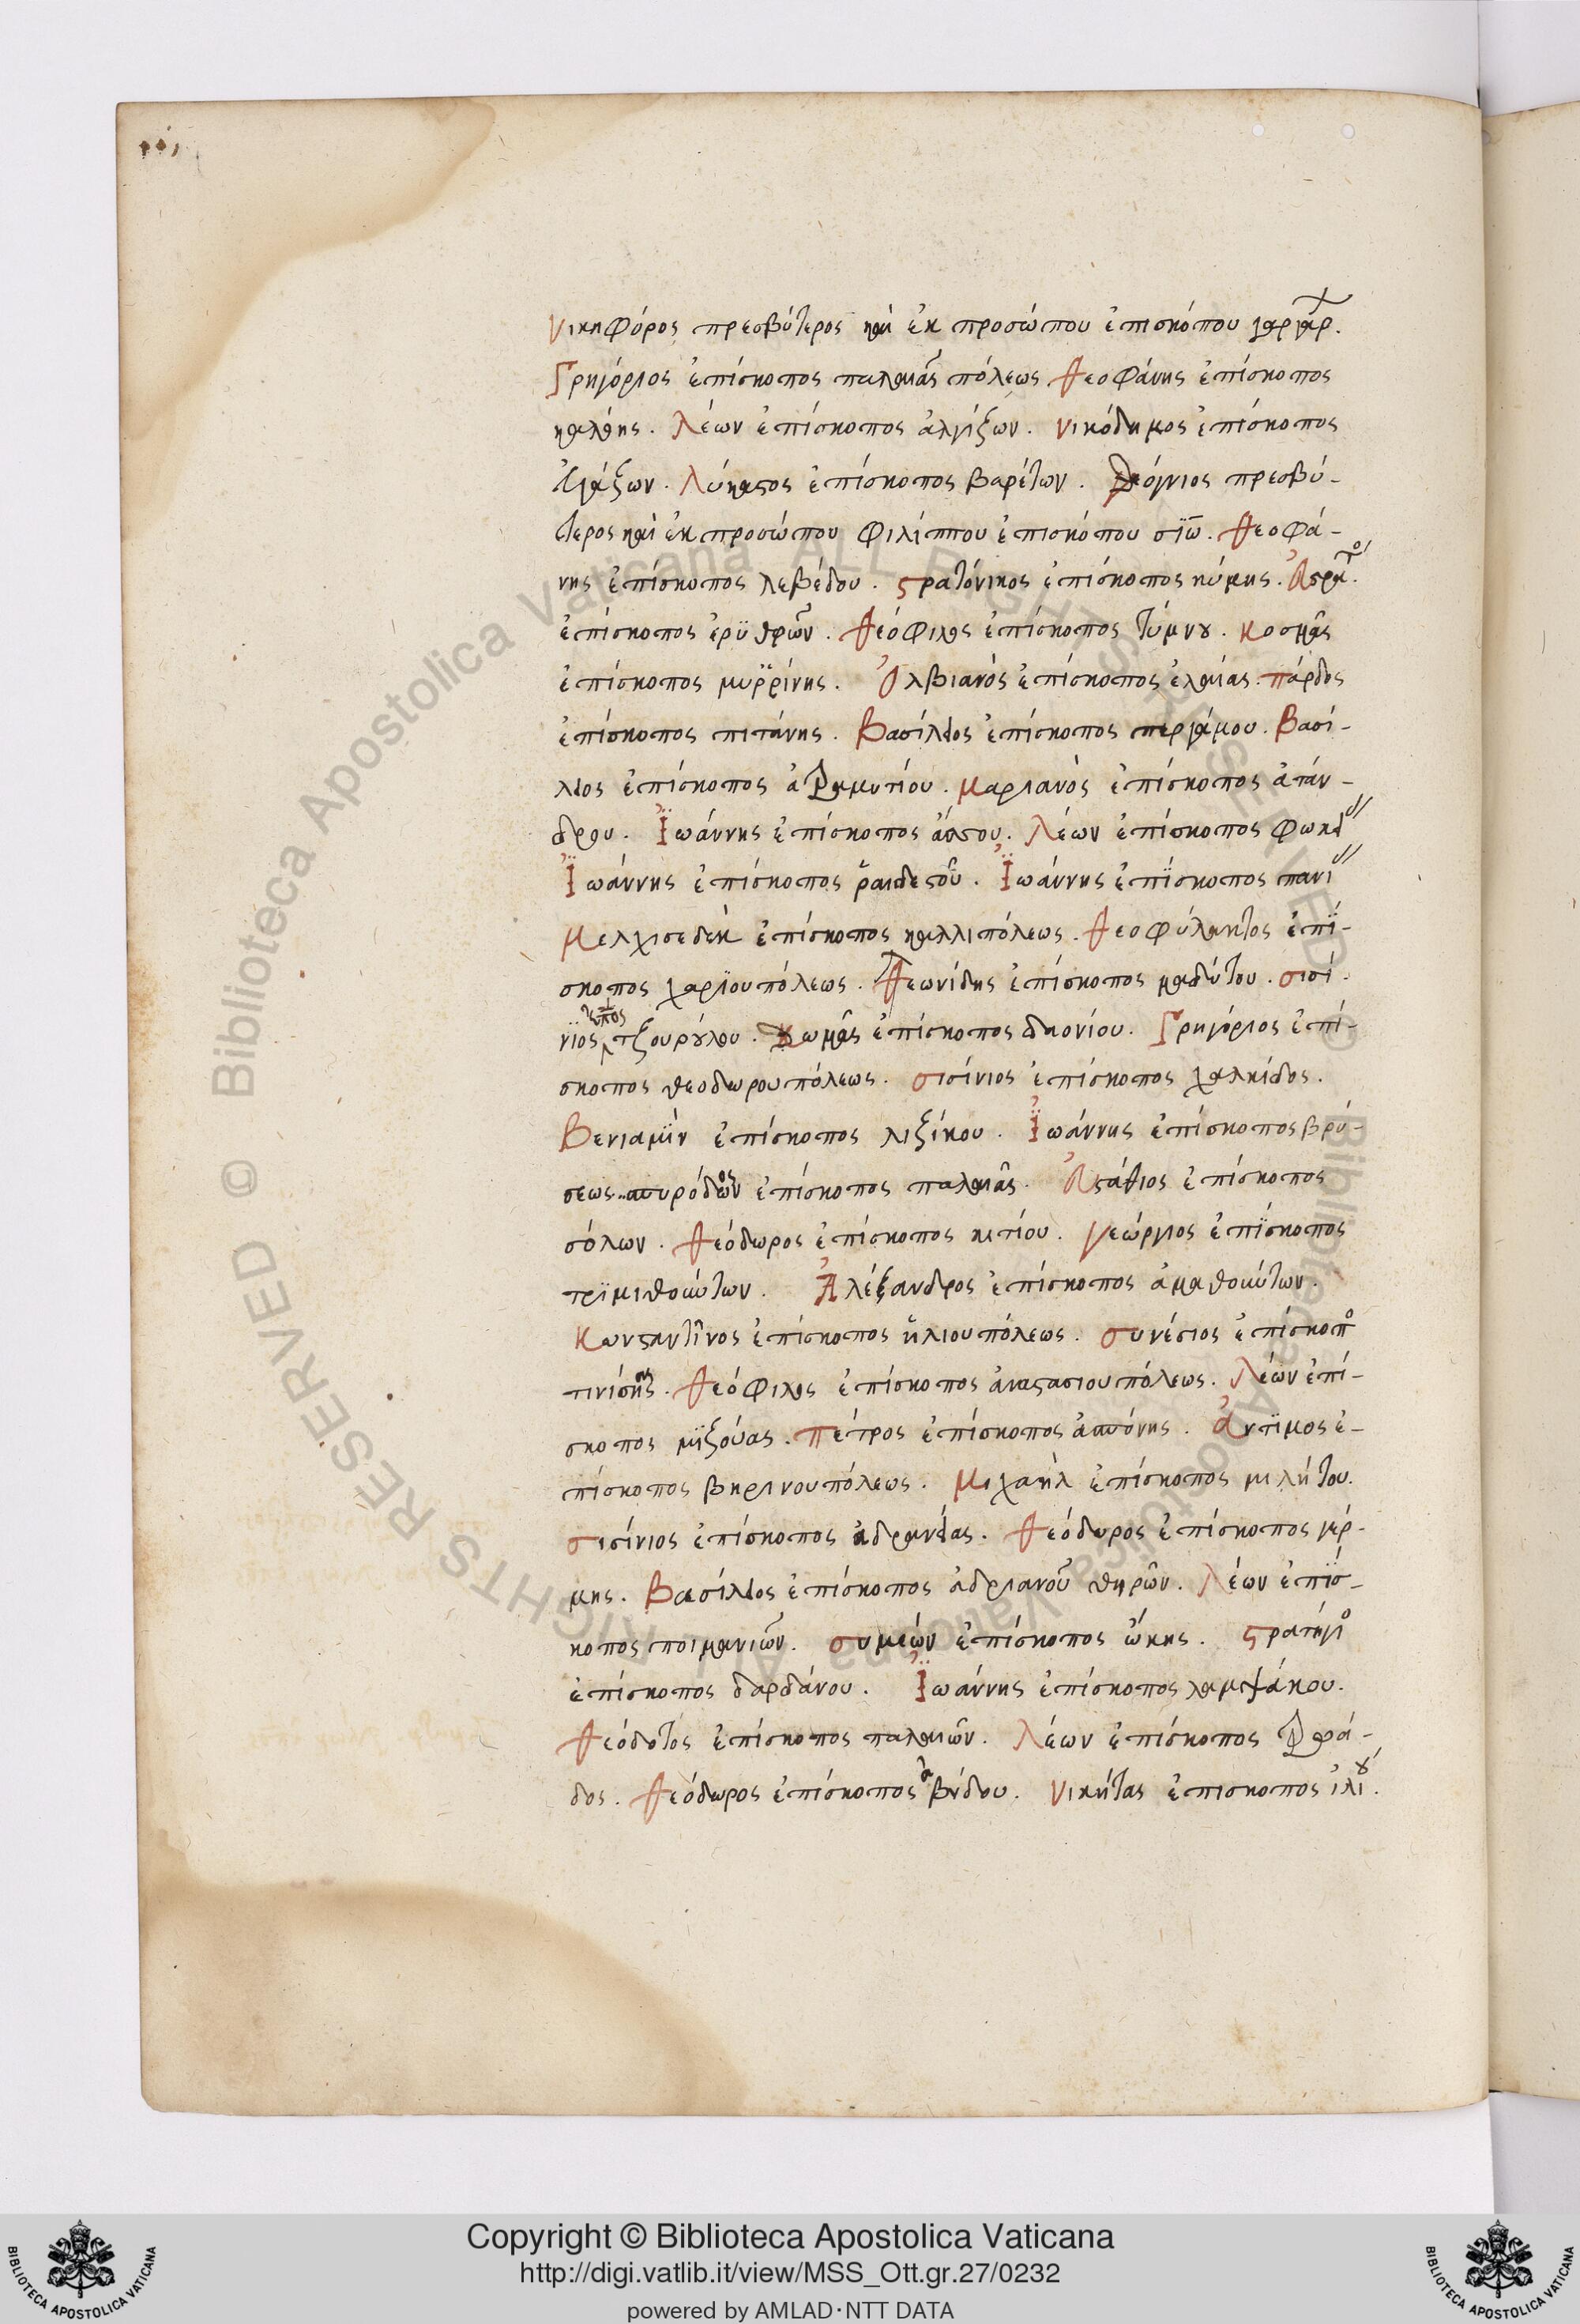 νικηφόρος πρεσβύτερος καὶ ἐκ προσώπου ἐπισκόπου γαργάρ.
Γρηγόριος ἐπίσκοπος παλαιᾶς πόλεως θεοφάνης ἐπίσκοπος
καλόης. Λέων ἐπίσκοπος ἀλγίξων. νικόδημος ἐπίσκοπος
ἐγάξων. Λύκαστος ἐπίσκοπος βαρέτων. θεόγνιος πρεσβύ-
τερος καὶ ἐκ προσώπου φιλίππου ἐπισκόπου σϊω. θεοφά-
νης ἐπίσκοπος λεβέδου. στρατόνικος ἐπίσκοπος κύμης.
ἐπίσκοπος ἐρϋθρῶν. θεόφιλος ἐπίσκοπος τύμνου. κοσμᾶς
ἐπίσκοπος μυρρίνης. ὀλβιανὸς ἐπίσκοπος ἐλαίας. πάρδος
ἐπίσκοπος πιτάνης. Βασίλειος ἐπίσκοπος περγάμου. Βασί-
λειος ἐπίσκοπος ἀδραμυτίου. μαριανὸς ἐπίσκοπος ἀτάν-
δρου. Ἰωάννης ἐπίσκοπος ἄσσου. Λέων ἐπίσκοπος φωκεί
Ἰωάννης ἐπίσκοπος ῥαιδεστοῦ. Ἰωάννης ἐπϊσκοπος πανί
μελχισεδὲκ ἐπίσκοπος καλλιπόλεως. θεοφύλακτος ἐπϊ-
σκοπος χαρϊουπόλεως. θεωνίδης ἐπίσκοπος μαδύτου. σισί-
νϊος ἐπος τζουρούλου. κωμᾶς ἐπίσκοπος δαονίου. Γρηγόριος ἐπί-
σκοπος θεοδωρουπόλεως. σισίνιος ἐπίσκοπος χαλκίδος.
Βενιαμϊν ἐπίσκοπος λιζίκου. Ἰωάννης ἐπίσκοπος βρύ-
σεως. ἐπίσκοπος παλαιᾶς. Ἀστάθιος ἐπίσκοπος
σόλων. θεόδωρος ἐπίσκοπος κιτίου. γεώργιος ἐπϊσκοπος
τρϊμιθούντων. Ἀλέξανδρος ἐπίσκοπος ἀμαθούντων.
κωνσταντῖνος ἐπίσκοπος ἡλιουπόλεως. συνέσιος ἐπίσκοπο
θεόφιλος ἐπίσκοπος ἀναστασιουπόλεως. Λέων ἐπί-
σκοπος μϊζούας. πέτρος ἐπίσκοπος ἀσπόνης. ἄντϊμος ἐ-
πίσκοπος βηρινουπόλεως. μιχαὴλ ἐπίσκοπος μιλήτου.
σισίνιος ἐπίσκοπος ἀδρανείας. θεόδωρος ἐπίσκοπος γέρ-
μης. Βασίλειος ἐπίσκοπος ἀδριανοῦ θηρῶν. Λέων ἐπϊσ-
κοπος ποιμανιῶν. συμεὼν ἐπίσκοπος ὤκης. στρατήγιο
ἐπίσκοπος δαρδάνου. Ἰωάννης ἐπίσκοπος λαμψάκου.
θεόδοτος ἐπίσκοπος παλαιῶν. Λέων ἐπίσκοπος τρωά-
δος. θεόδωρος ἐπίσκοπος ἀβύδου. νικήτας ἐπισκοπος ἰλίου.
Copyright © Biblioteca Apostolica Vaticana
http://digi.vatlib.it/view/MSS_Ott.gr.27/0232
powered by AMLAD·NTT DATA